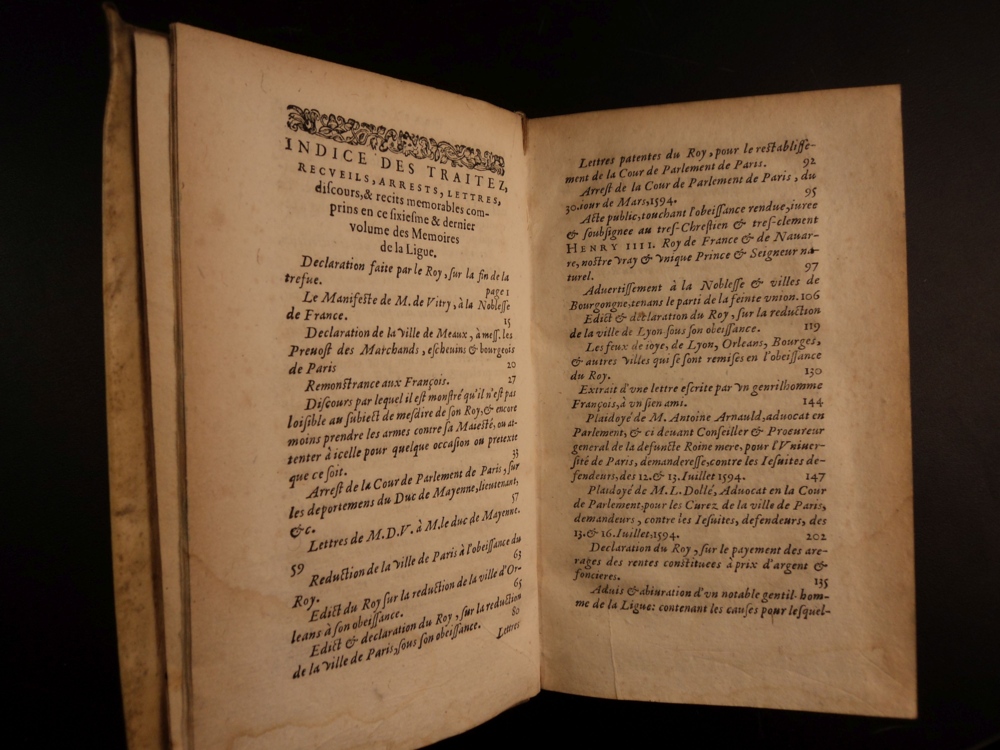 INDICE DES TRAITEZ,
RECVEILS, ARRESTS, LETTRES,
diſcours, & recits memorables com-
prins en ce ſixieſme & dernier
volume des Memoires
de la Ligue.
Declaration faite par le Roy, ſur la fin de la
trefue. page 1
Le Manifeſte de M. de Vitry, à la Nobleſſe
de France. 15
Declaration de la ville de Meaux, à meſſ. les
Preuoſt des Marchands, eſcheuins & bourgeois
de Paris 20
Remonſtrance aux François. 27
Diſcours par lequel il eſt monſtré qu'il n'eſt pas
loiſible au ſubiect de meſdire de ſon Roy, & encore
moins prendre les armes contre ſa Maieſté, ou at-
tenter à icelle pour quelque occaſion ou pretexte
que ce ſoit. 33
Arreſt de la Cour de Parlement de Paris, ſur
les deportemens du Duc de Mayenne, lieutenant,
&c. 57
Lettres de M. D. V. à M. le duc de Mayenne.
59
Reduction de la ville de Paris à l'obeiſſance du
Roy. 63
Edict du Roy ſur la reduction de la ville d'Or-
leans à ſon obeiſſance. 65
Edict & declaration du Roy, ſur la reduction
de la ville de Paris, ſous ſon obeiſſance. 80
Lettres
Lettres patentes du Roy, pour le reſtabliſſe-
ment de la Cour de Parlement de Paris. 92
Arreſt de la Cour de Parlement de Paris, du
30. iour de Mars, 1594. 95
Acte public, touchant l'obeiſſance rendue, iuree
& ſoubſignee au treſ-Chreſtien & treſ-clement
HENRY IIII. Roy de France & de Nauar-
re, noſtre vray & vnique Prince & Seigneur na
turel. 97
Aduertiſſement à la Nobleſſe & villes de
Bourgongne, tenans le parti de la feinte vnion. 106
Edict & declaration du Roy, ſur la reduction
de la ville de Lyon ſous ſon obeiſſance. 119
Les feux de ioye, de Lyon, Orleans, Bourges,
& autres villes qui ſe ſont remiſes en l'obeiſſance
du Roy. 130
Extrait d'vne lettre eſcrite par vn gentilhomme
François, à vn ſien ami. 144
Plaidoyé de M. Antoine Arnauld, aduocat en
Parlement, & ci deuant Conſeiller & Procureur
general de la defuncte Roine mere, pour l'Vniuer-
ſité de Paris, demandereſſe, contre les Ieſuites de-
fendeurs, des 12. & 13. Iuillet 1594. 147
Plaidoyé de M. L. Dollé, Aduocat en la Cour
de Parlement, pour les Curez de la ville de Paris,
demandeurs, contre les Ieſuites, defendeurs, des
13. & 16. Iuillet, 1594. 202
Declaration du Roy, ſur le payement des are-
rages des rentes conſtituees à prix d'argent &
foncieres. 135
Aduis & abiuration d'vn notable gentil-hom-
me de la Ligue: contenant les cauſes pour leſquel-